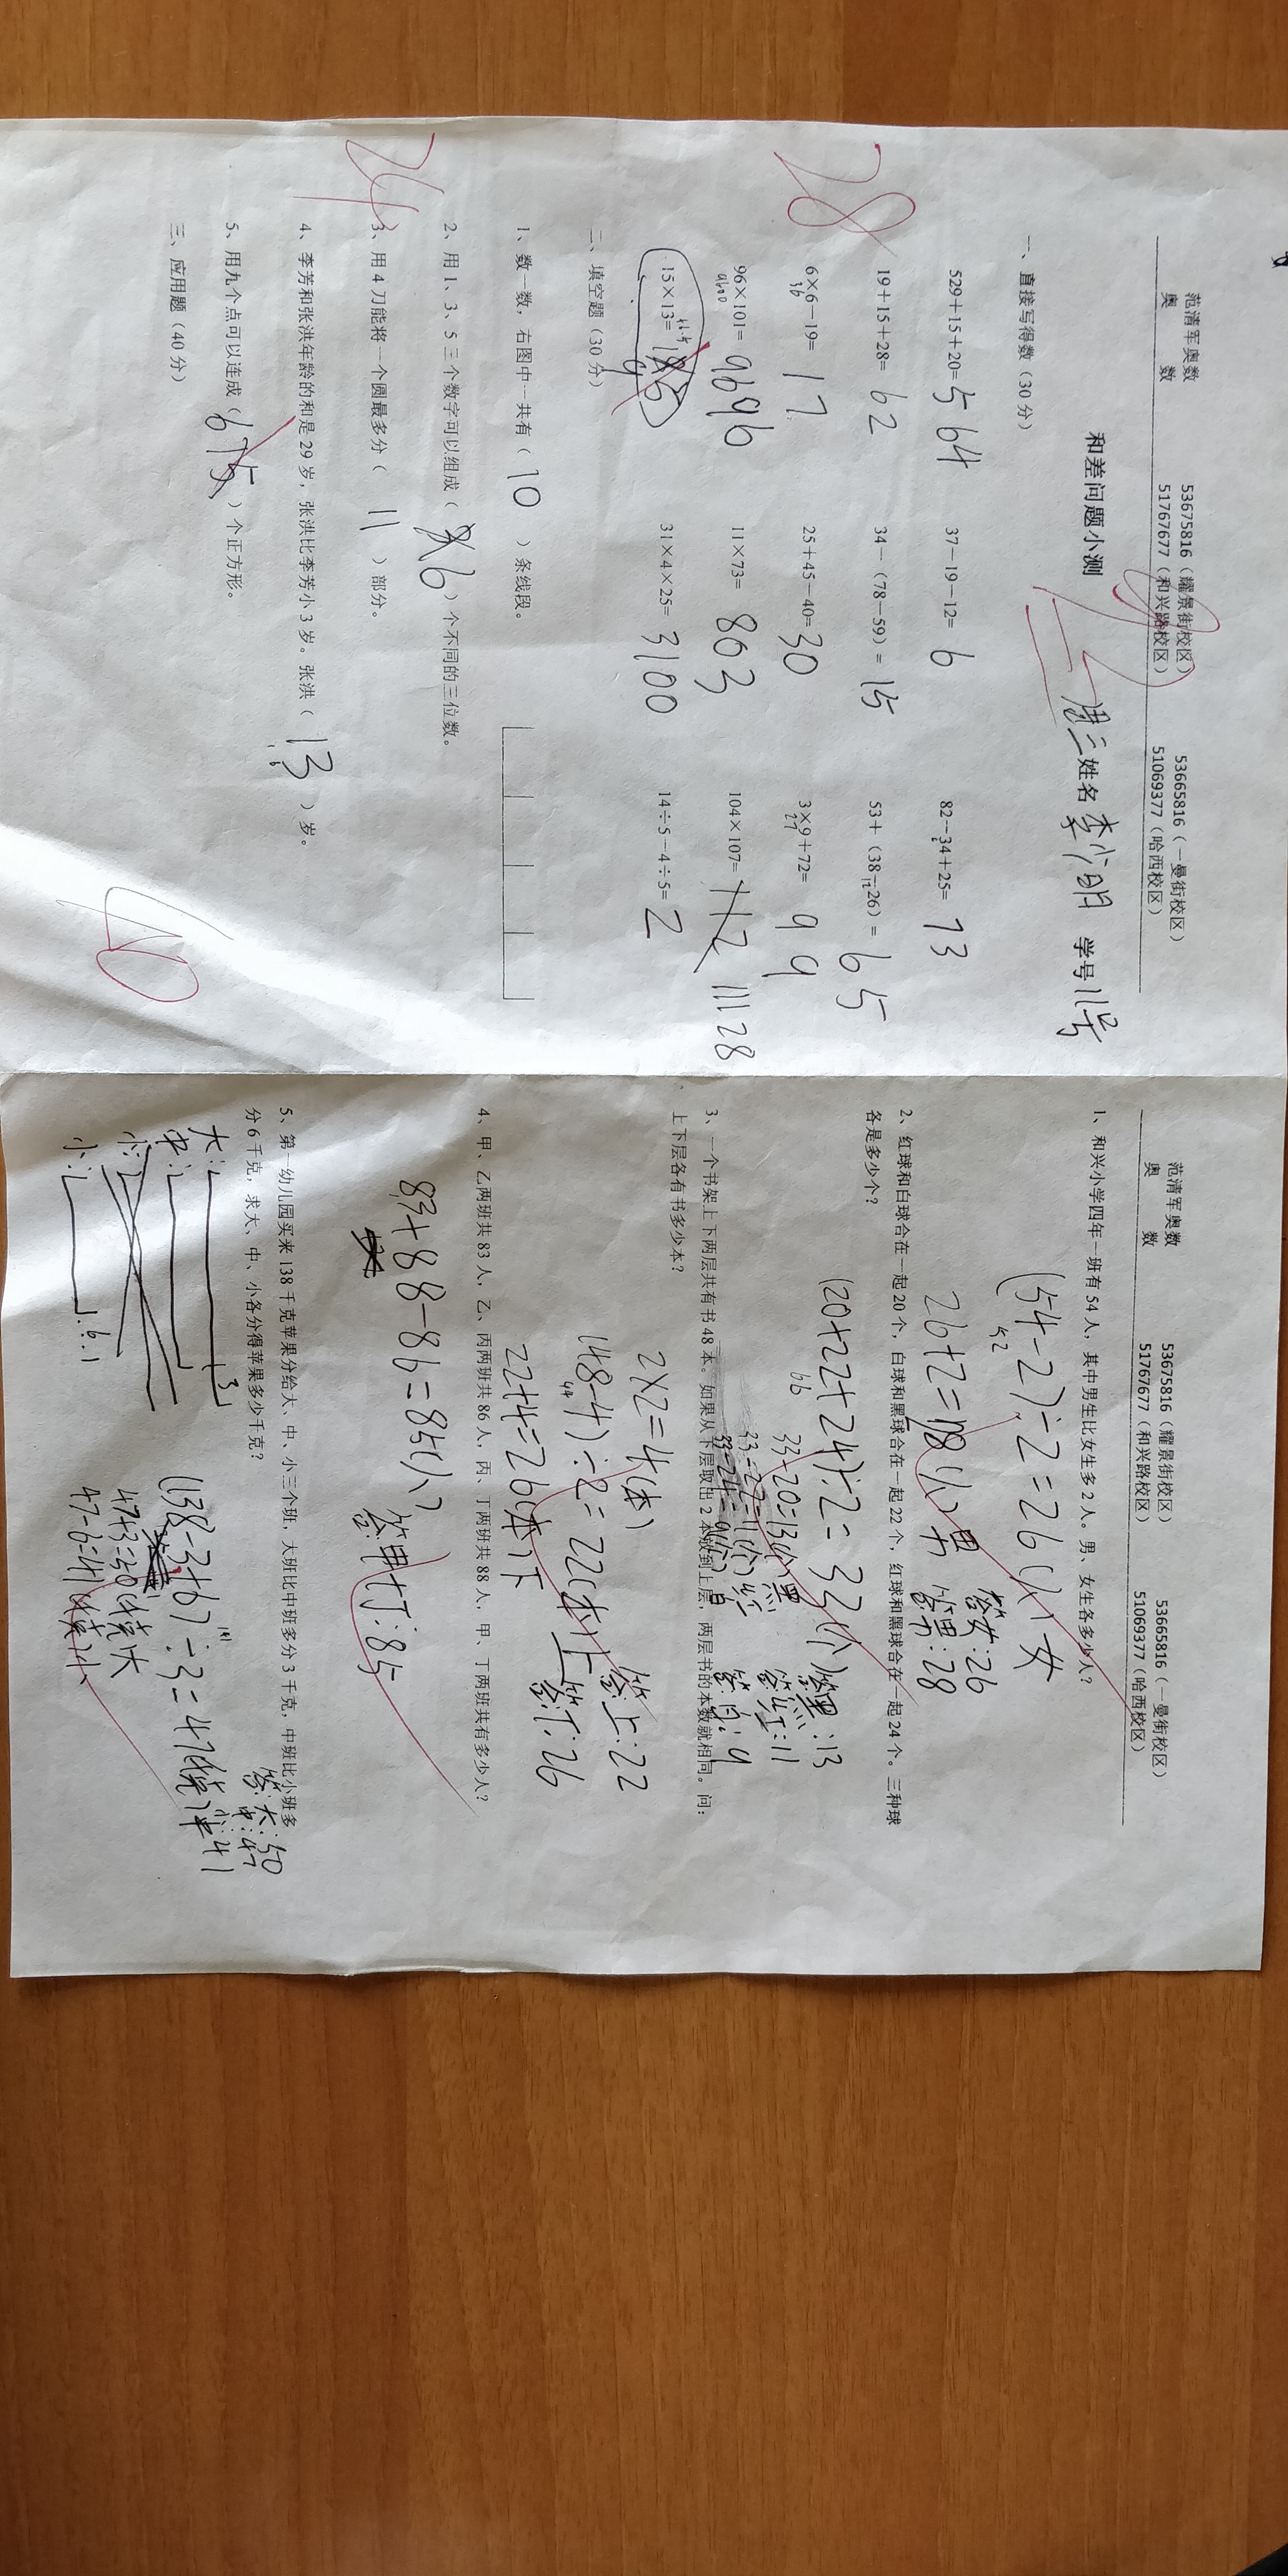 范清军奥数 53675816（耀景街校区） 53665816（一曼街校区）
奥 数 51767677（和兴路校区） 51069377（哈西校区）
和差问题小测 92 周三 姓名 李少明 学号 12号
一、直接写得数（30分）
28
529＋15＋20= 564 37－19－12= 6 82－34＋25= 73
19＋15＋28= 62 34－（78－59）= 15 53＋（38－26）= 65
12
6×6－19= 17 25＋45－40= 30 3×9＋72= 99
36 27
96×101= 9696 11×73= 803 104×107= 11128
9600
15×13= 31×4×25= 3100 14÷5－4÷5= 2
二、填空题（30分）
1、数一数，右图中一共有（ 10 ）条线段。
2、用1、3、5三个数字可以组成（ 6 ）个不同的三位数。
24
3、用4刀能将一个圆最多分（ 11 ）部分。
4、李芳和张洪年龄的和是29岁，张洪比李芳小3岁。张洪（ 13 ）岁。
5、用九个点可以连成（ 6 ）个正方形。
三、应用题（40分）
40
范清军奥数 53675816（耀景街校区） 53665816（一曼街校区）
奥 数 51767677（和兴路校区） 51069377（哈西校区）
1、和兴小学四年一班有54人，其中男生比女生多2人。男、女生各多少人？
(54-2)÷2=26(人)女
52
26+2=28(人)男
答女:26
答男:28
2、红球和白球合在一起20个，白球和黑球合在一起22个，红球和黑球合在一起24个。三种球
各是多少个？
(20+22+24)÷2=33(个)
66
33-20=13(个)黑
33-22=11(个)红
33-24=9(个)白
答黑:13
答红:11
答白:9
3、一个书架上下两层共有书48本。如果从下层取出2本放到上层，两层书的本数就相同。问：
上下层各有书多少本？
2×2=4(本)
(48-4)÷2=22(本)上
44
22+4=26(本)下
答上:22
答下:26
4、甲、乙两班共83人，乙、丙两班共86人，丙、丁两班共88人，甲、丁两班共有多少人？
83+88-86=85(人)
答甲丁:85
5、第一幼儿园买米138千克苹果分给大、中、小三个班，大班比中班多分3千克，中班比小班多
分6千克，求大、中、小各分得苹果多少千克？
大: 3
中:
小: 6
(138-3+6)÷3=47(千克)中
141
47+3=50(千克)大
47-6=41(千克)小
答大:50
中:47
小:41